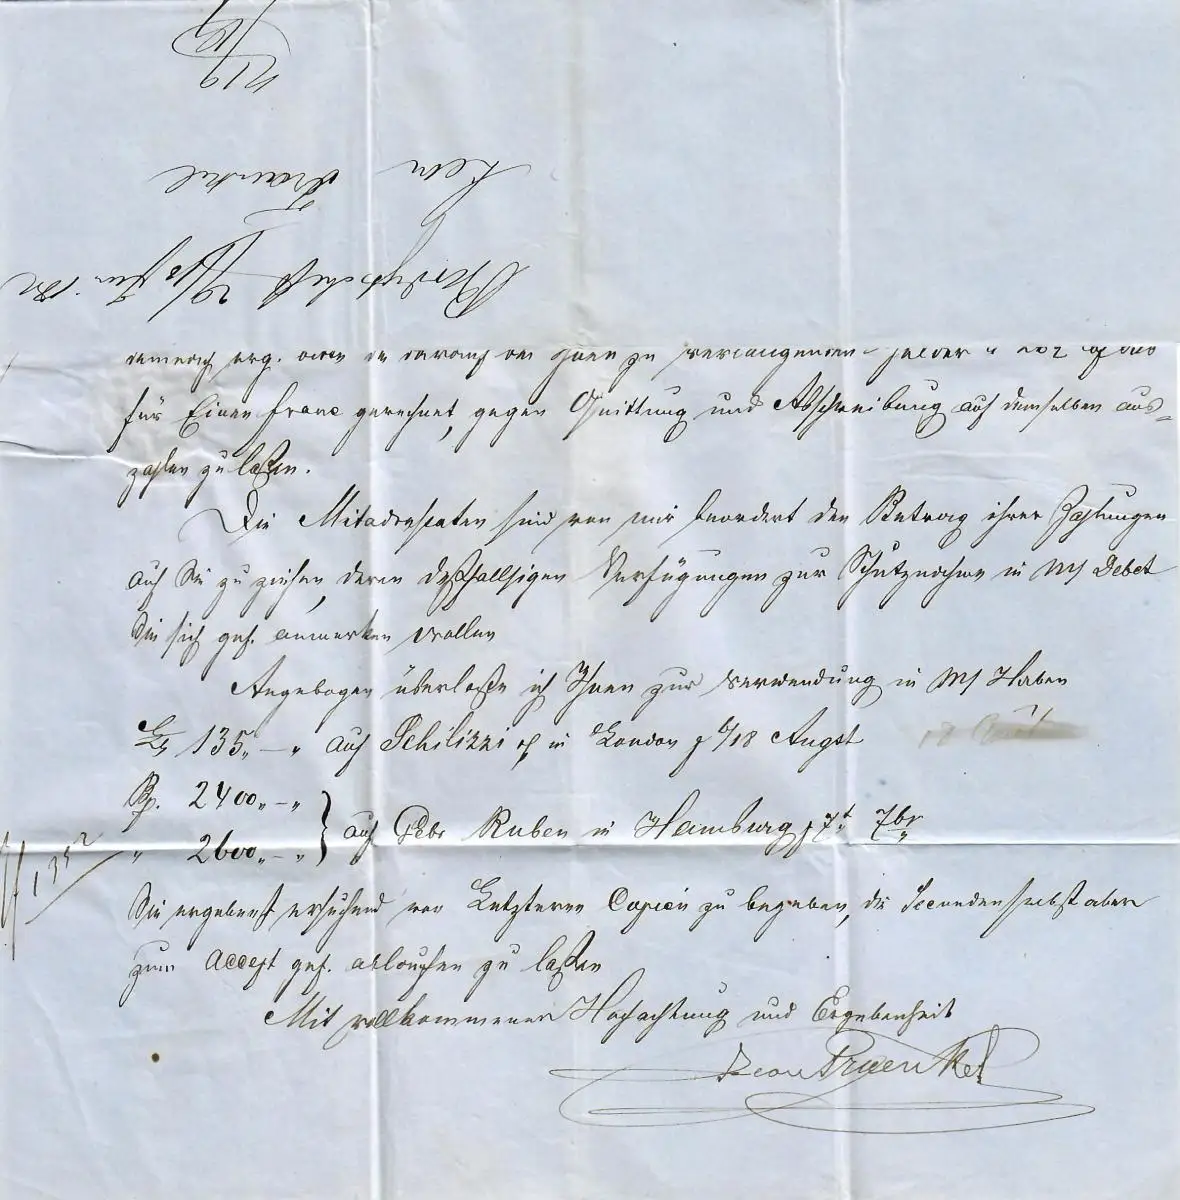 1219
Leon
Fraenkel
für Einen franc gerechnet, gegen Quittung und Abschreibung auf demselben aus=
zahlen zu laßen.
Die Mitadressaten sind von mir beordert den Betrag ihrer Zahlungen
auf Sie zu ziehen, deren deßfallsigen Verfügungen zur Schutznahme in M/ Debet
Sie sich gef. anmerken wollen
Angebogen überlaße ich Ihnen zur Verwendung in M/ Haben
L 135 „ – „ auf Schilizzi in London 6/18 Augst
2400 „ – „
„ 2600 „ – „ } auf Gebr Ruben in Hamburg 7t 7br
Sie ergebenst ersuchend von Letzteren Copien zu begeben, die Secunden selbst aber
zum Accept gef. zu laßen
Mit vollkommener Hochachtung und Ergebenheit
Leon Fraenkel